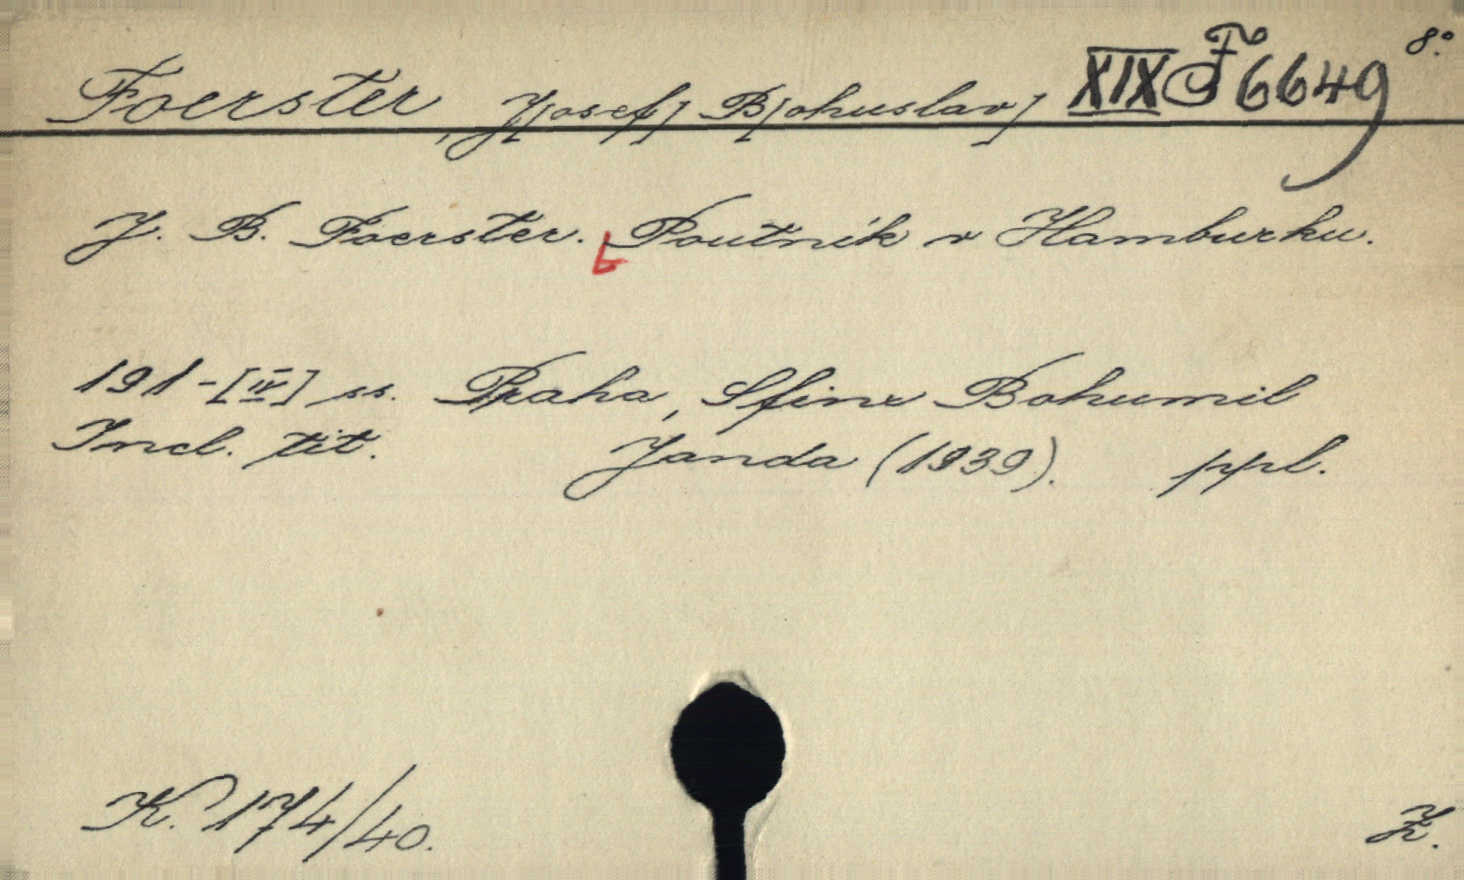 Foerster, J[osef] B[ohuslav] XIX F 6649 8°.
J. B. Foerster. Poutník v Hamburku.
191-[IV] ss. Praha, Sfinx Bohumil
Incl. tit. Janda (1939). ppl.
K. 174/40. Ž.